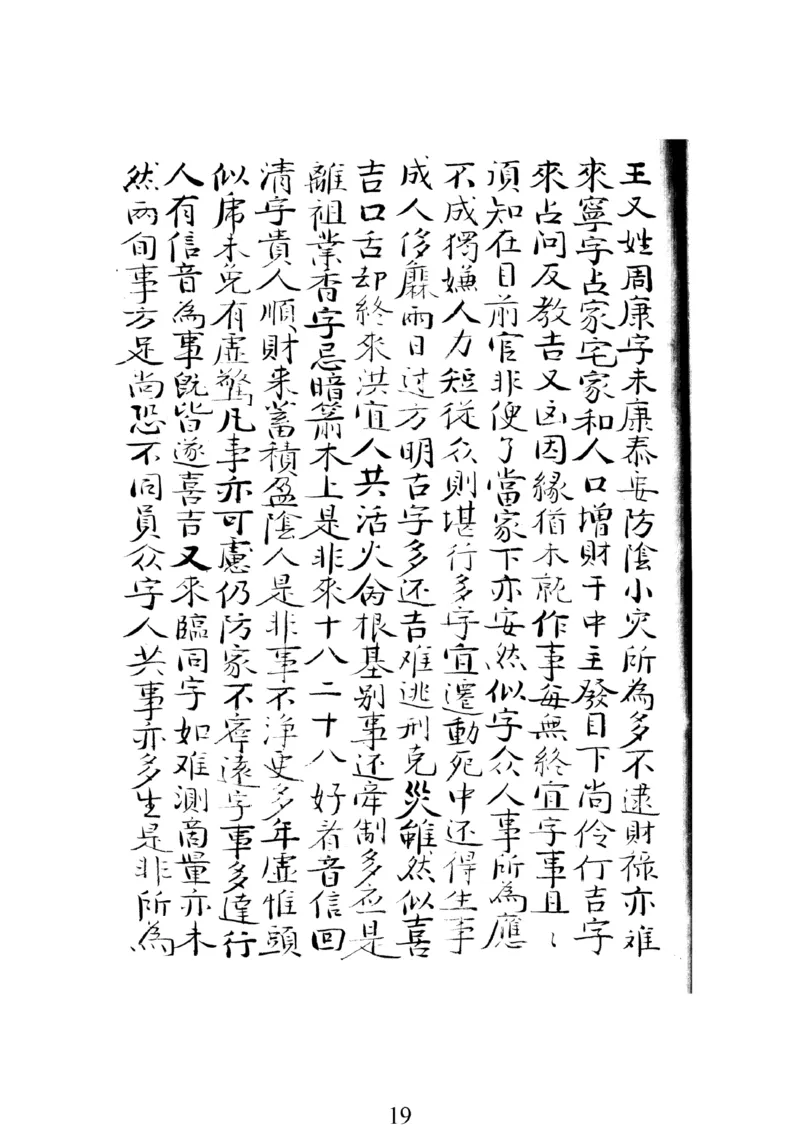 王又姓周康字未康泰妄防陰小灾所為多不逮財祿亦难
來寧字占家宅家和人口增財干中主發目下尚伶仃吉字
來占问反教吉又凶因緣猶未就作事每無終宜字事且〻
須知在目前官非便了當家下亦安然似字众人事所為應
不成獨嫌人力短從众則堪行多字宜遷動死中还得生事
成人侈靡雨日过方明古字多还吉难逃刑克災雖然似喜
吉口舌却終來洪宜人共活火命根基别事还牽制多应是
離祖業香字忌暗箭木上是非來十八二十八好看音信回
清字貴人順財来蓄積盈陰人是非事不淨更多年虛惟頭
似席未免有虛驚凡事亦可慮仍防家不寧遠字事多達行
人有信音為事既皆遂喜吉又來臨同字如难測商量亦未
然两旬事方足尚恐不同員众字人共事亦多生是非所為
19